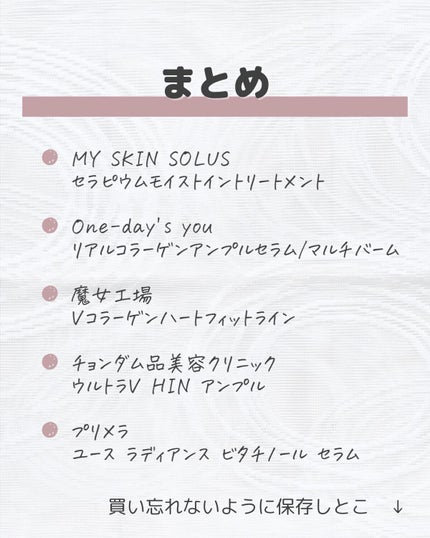 まとめ
MY SKIN SOLUS
セラピウムモイストイントリートメント
One-day's you
リアルコラーゲンアンプルセラム/マルチバーム
魔女工場
Vコラーゲンハートフィットライン
チョンダム品美容クリニック
ウルトラV HIN アンプル
プリメラ
ユース ラディアンス ビタチノール セラム
買い忘れないように保存しとこ ↓